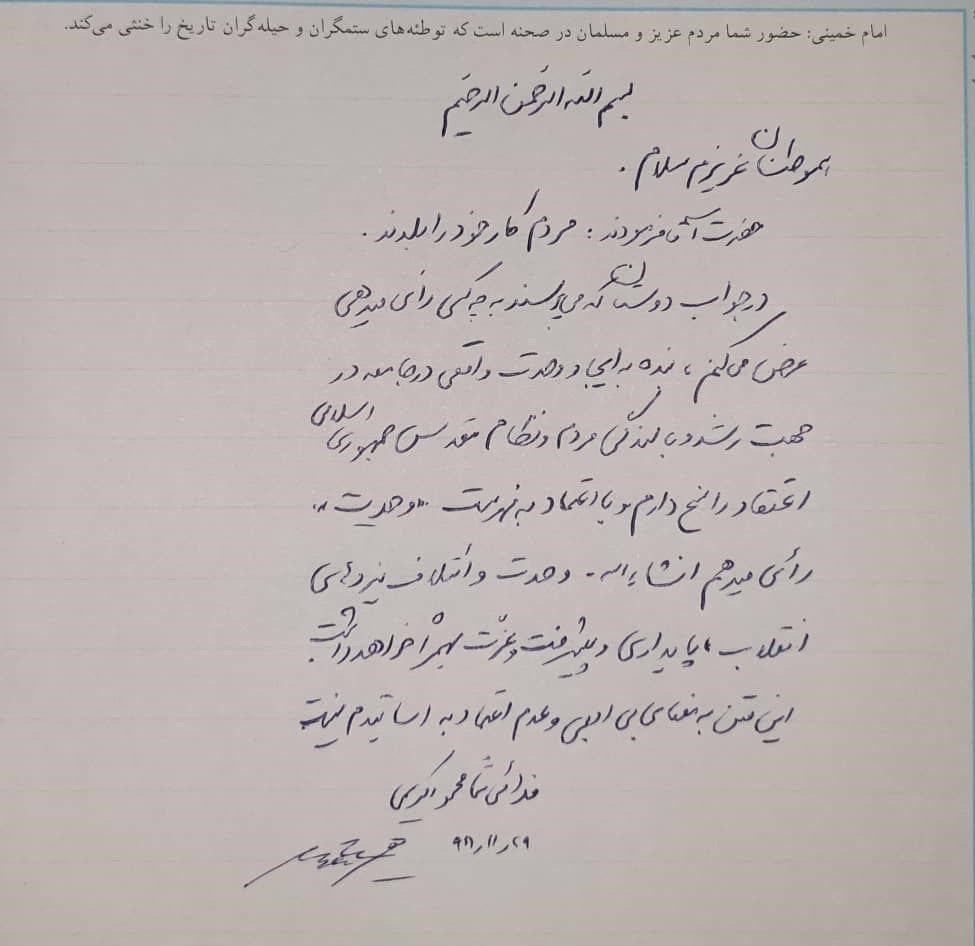 امام خمینی: حضور شما مردم عزیز و مسلمان در صحنه است که توطئه‌های ستمگران و حیله‌گران تاریخ را خنثی می‌کند.
بسم الله الرحمن الرحیم
هموطنان عزیزم سلام.
حضرت آقا فرمودند: مردم کار خود را بلدند.
در جواب دوستان که می‌پرسند به چه کسی رأی میدهی
عرض می‌کنم، بنده به ایجاد وحدت واقعی در جامعه در
جهت رشد و بالندگی مردم و نظام مقدس جمهوری اسلامی
اعتقاد راسخ دارم و با اعتماد به فهرست "وحدت"
رأی میدهم انشاءاله. وحدت و ائتلاف نیروهای
انقلاب، پایداری و پیشرفت و عزت بهمراه خواهد داشت
این متن به معنای بی ادبی و عدم اعتماد به اساتیدم نیست
فدائی شما محمود کریمی
۹۸/۱۱/۲۹